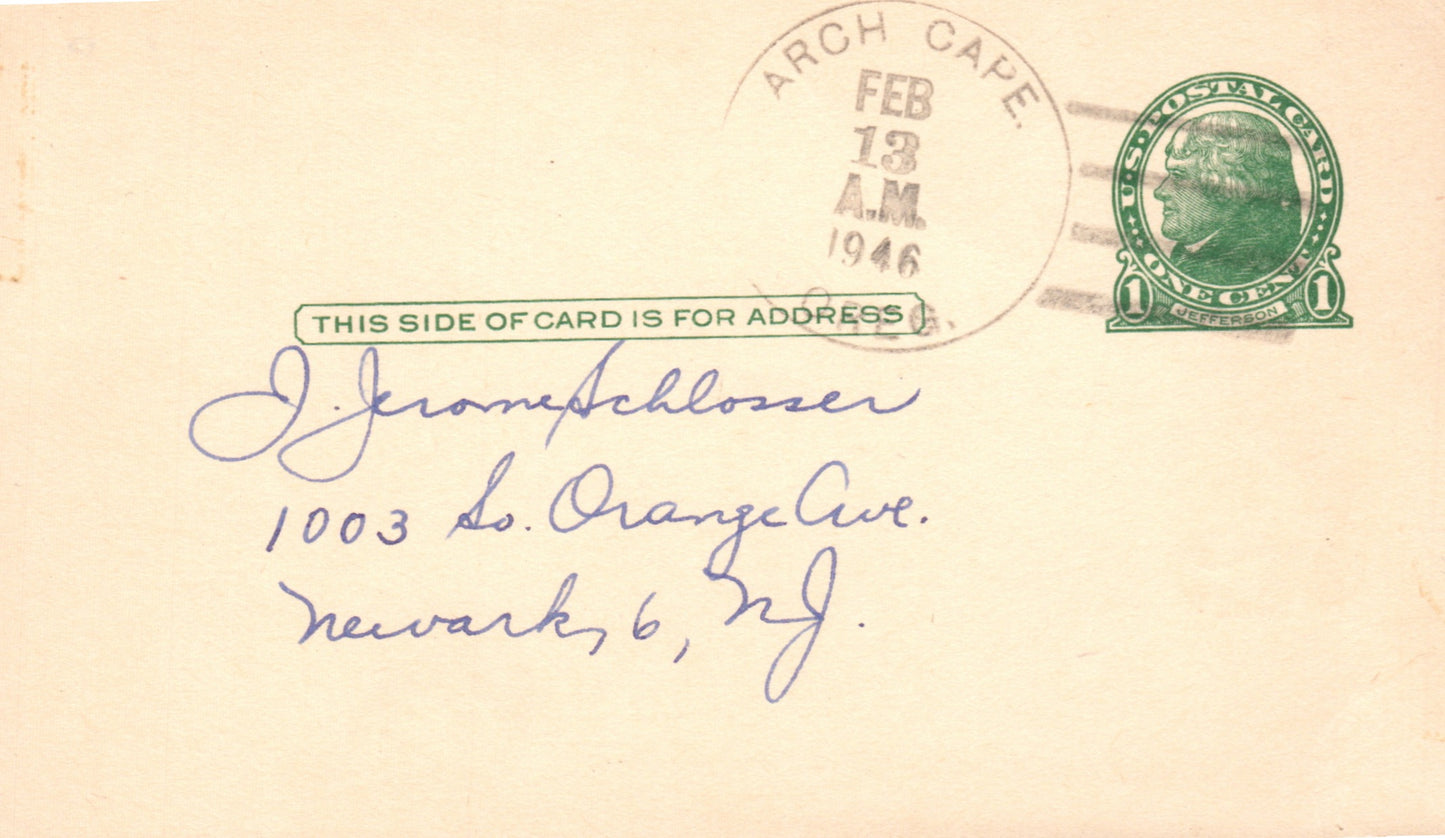 ARCH CAPE.
FEB
13
A.M.
1946
OREG.
U.S. POSTAL CARD
ONE CENT
1 JEFFERSON 1
THIS SIDE OF CARD IS FOR ADDRESS
J. Jerome Schlosser
1003 So. Orange Ave.
Newark, 6, N.J.